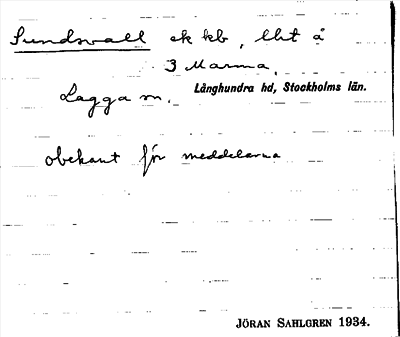 Sundsvall ek kb, lht å
3 Marma,
Lagga sn. Långhundra hd, Stockholms län.
obekant för meddelarna
JÖRAN SAHLGREN 1934.